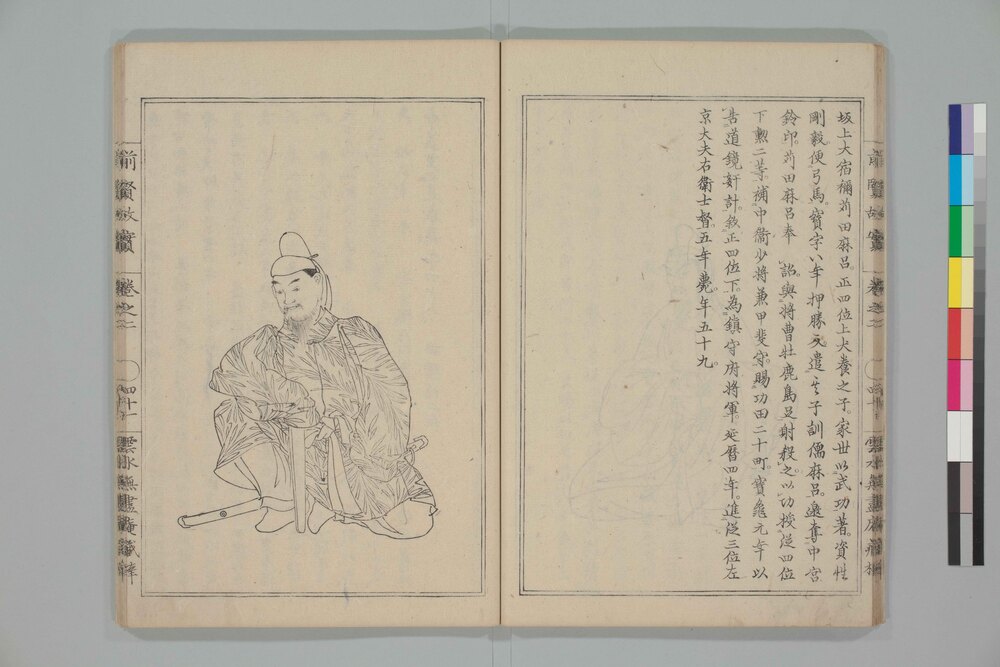 坂上大宿禰苅田麻呂。正四位上犬養之子。家世以武功著。資性
剛毅。便弓馬。寶字八年押勝反。遣其子訓儒麻呂。邀奪中宮
鈴印。苅田麻呂奉 詔與將曹牡鹿島足射殺之。以功授從四位
下勲二等。補中衞少將兼甲斐守。賜功田二十町。寶龜元年以
告道鏡奸計。敘正四位下。為鎮守府將軍。延暦四年。進從三位左
京大夫右衞士督。五年薨。年五十九。
前賢故實 卷之二
前賢故實 卷之二 四十一